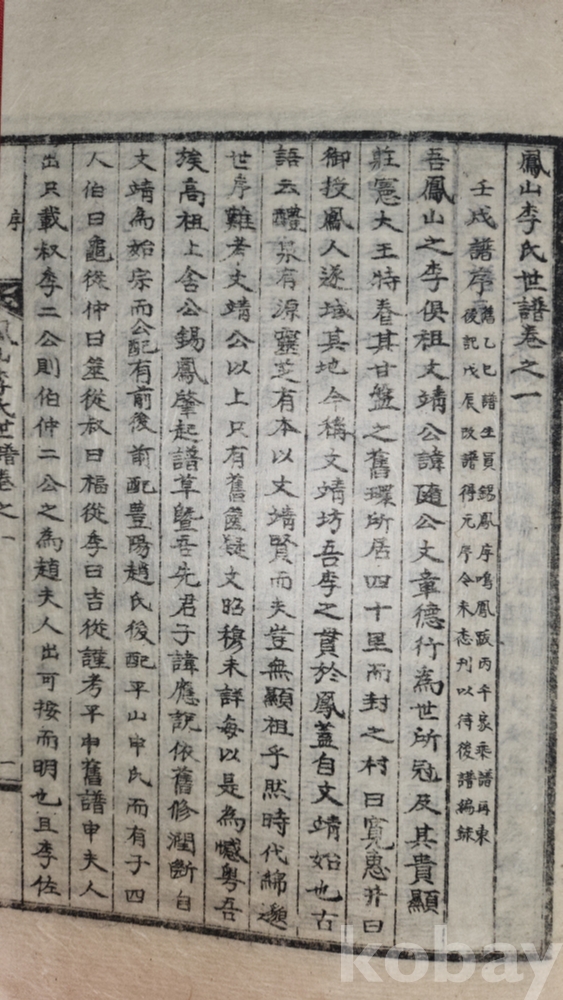 鳳山李氏世譜卷之一
壬戌譜序
舊乙巳譜生員錫鳳序鳴鳳跋丙午家乘譜再東
後記戊辰改譜得元序今未志刊以待後譜編錄
吾鳳山之李俱祖文靖公諱隨公文章德行為世所冠及其貴顯
莊憲大王特眷其甘盤之舊環所居四十里而封之村曰寬惠井曰
御授鳳人遂城其地今稱文靖坊吾李之貫於鳳蓋自文靖始也古
語云醴泉有源靈芝有本以文靖賢而夫豈無顯祖乎然時代綿邈
世序難考文靖公以上只有舊篋疑文昭穆未詳每以是為憾粤吾
族高祖上舍公錫鳳肇起譜草曁吾先君子諱應說依舊修潤斷自
文靖為始宗而公配有前後前配豊陽趙氏後配平山申氏而有子四
人伯曰龜從仲曰筮從叔曰福從季曰吉從謹考平申舊譜申夫人
出只載叔季二公則伯仲二公之為趙夫人出可按而明也且李佐
序
鳳山李氏世譜卷之一
一
kobay